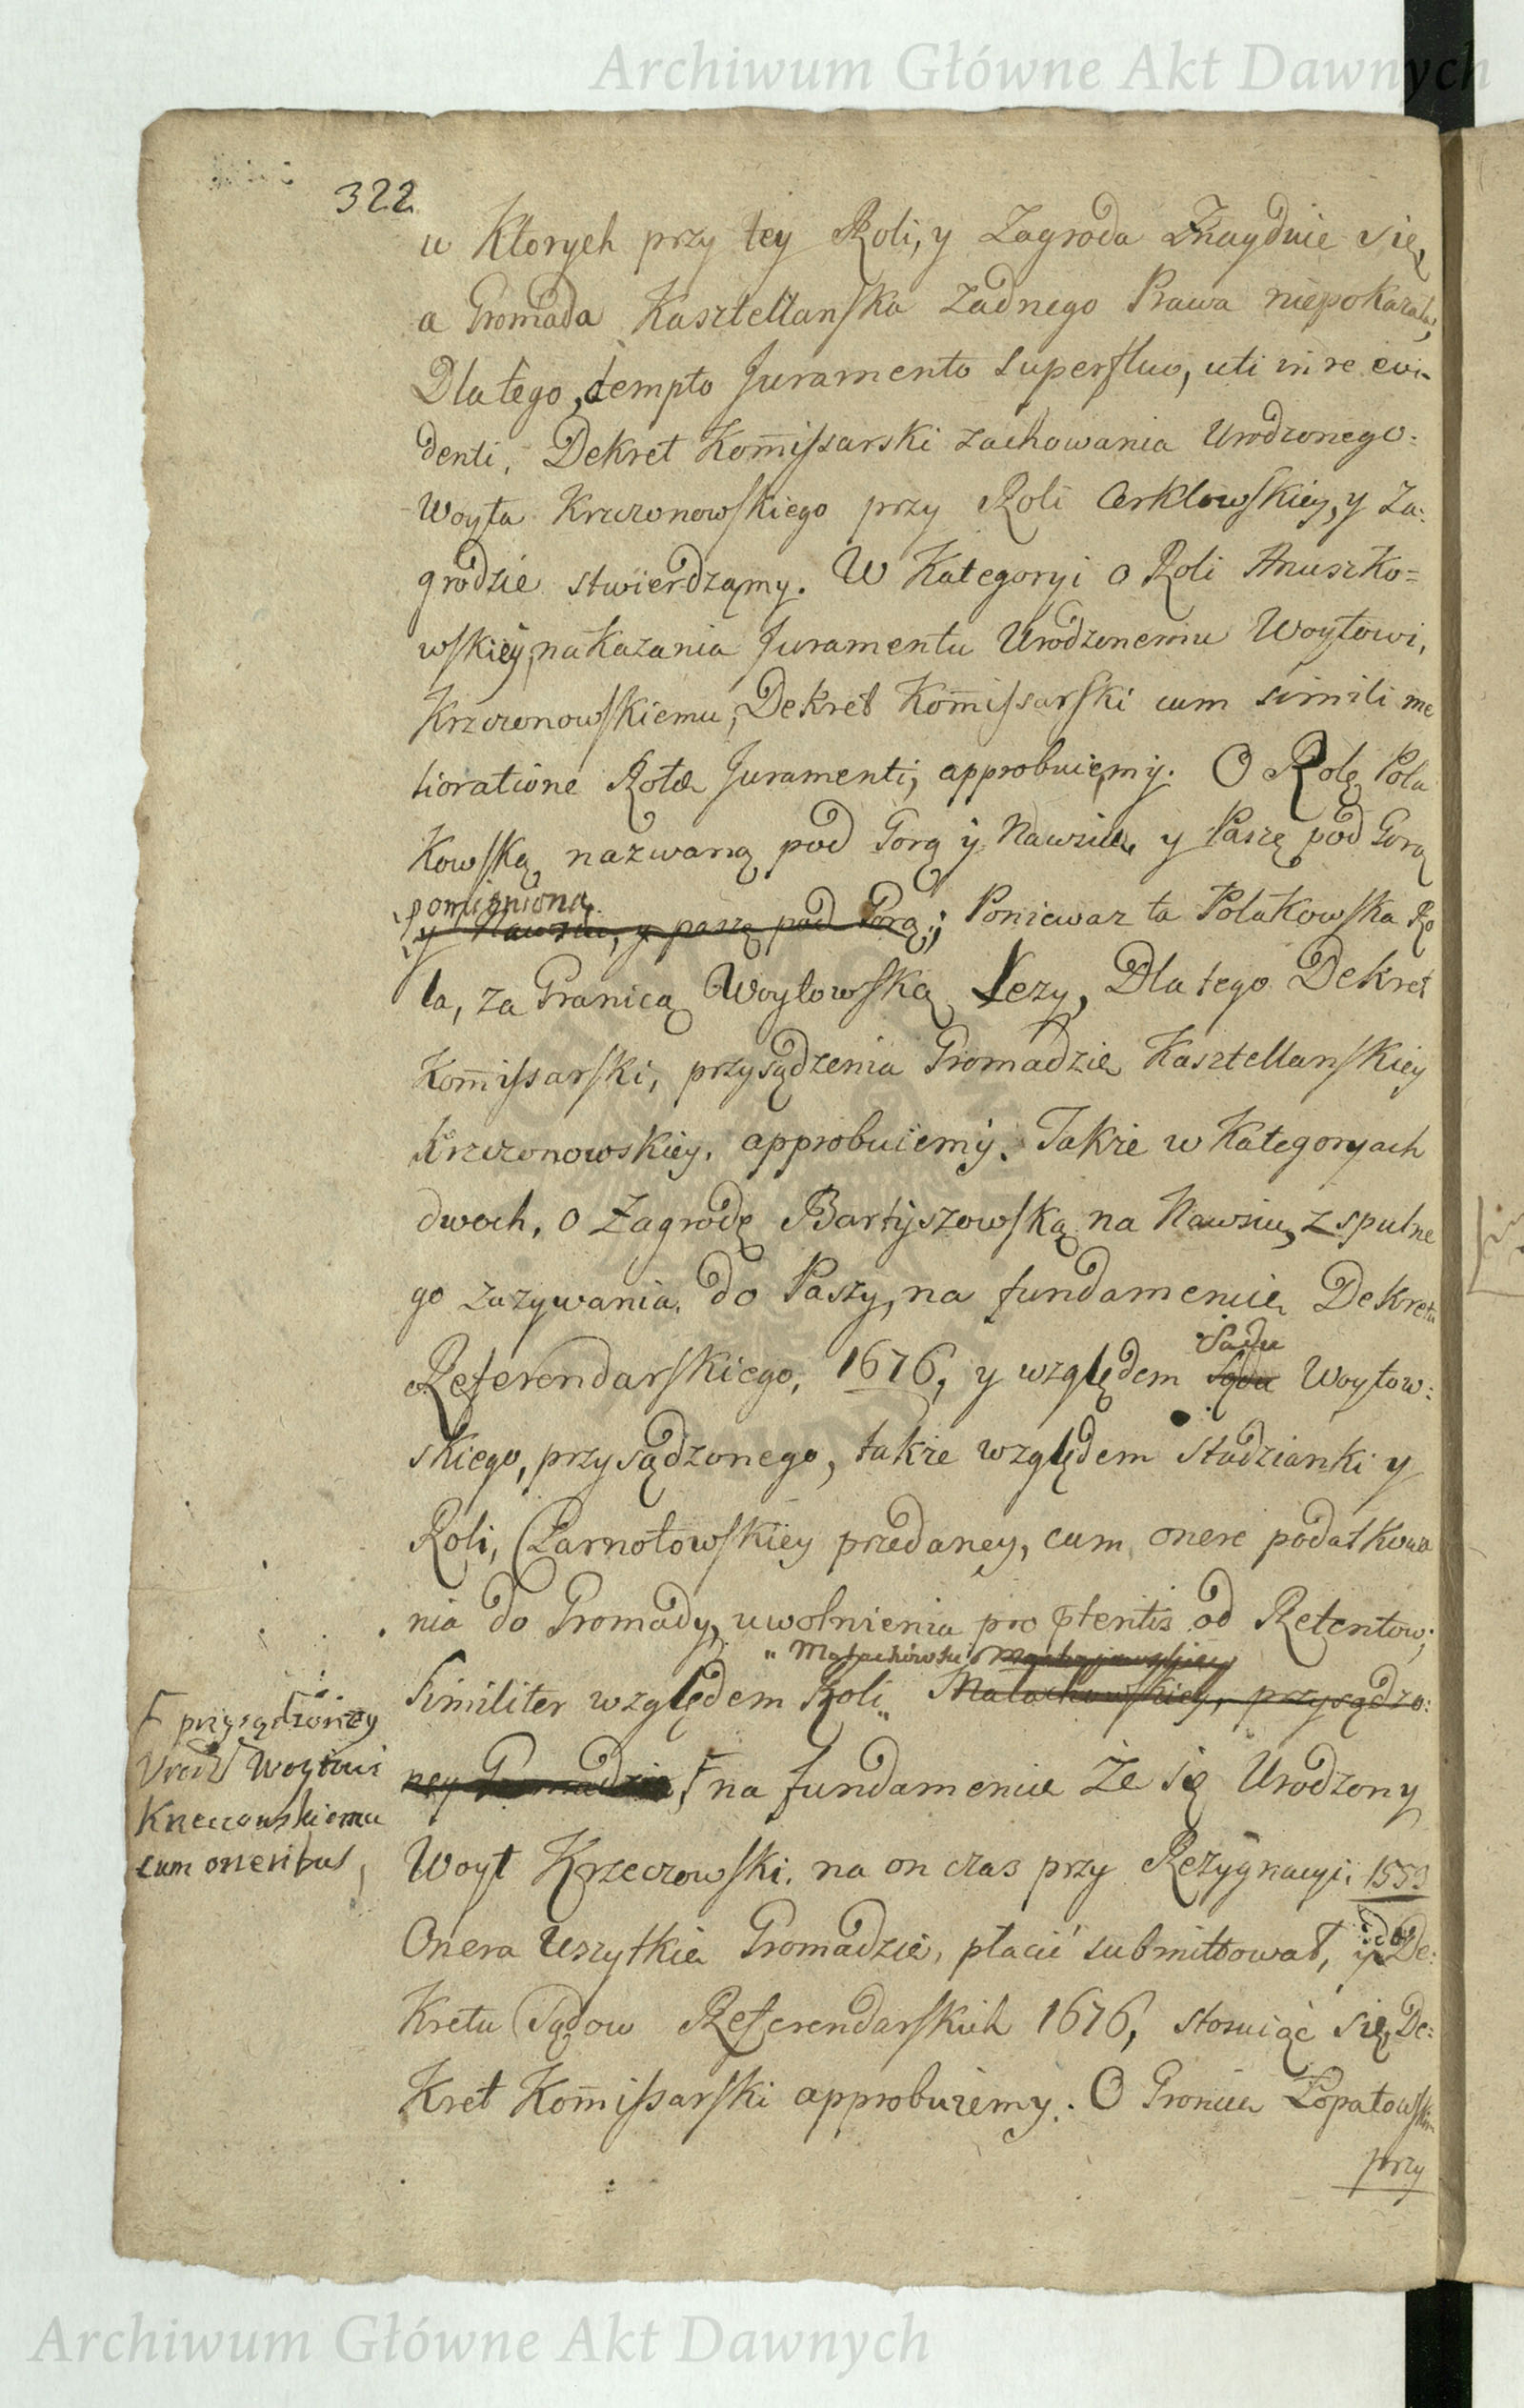 Archiwum Główne Akt Dawnych
322
u Ktorych przy tey Roli, y Zagroda Znayduie się,
a Gromada Kasztellanska Zadnego Prawa niepokazała,
Dlatego, dempto Juramento superfluo, uti in re evi-
denti, Dekret Kom̄issarski zachowania Urodzonego
Woyta Krzczonowskiego przy Roli Cerklowskiey, y Za:
grodzie stwierdzamy. W Kategoryi o Roli Anuszko=
wskiey, nakazania Juramentu Urodzonemu Woytowi,
Krzczonowskiemu, Dekret Kom̄issarski cum simili me
lioratione Rotæ Juramenti, approbuiemy. O Rolę Pola
Kowską nazwaną pod Gorą y Nawsiu, y Paszę pod Gorą
pomienioną
y Nawsiu, y paszę pod Gorą; Poniewaz ta Polakowska Ro
la, za Granicą Woytowską Lezy, Dlatego Dekret
Kom̄issarski, przysądzenia Gromadzie Kasztellanskiey
Krzczonowskiey, approbuiemy. Takze w Kategoryach
dwoch, o Zagrodę Bartyszowską na Nawsiu, z spulne
go zazywania do Paszy, na fundamencie Dekretu
Sadu
Referendarskiego, 1676, y względem Woytow:
skiego, przysądzonego, takze względem Studzianki y
Roli, Czarnotowskiey przedaney, cum onere podatkowa
nia do Gromady, uwolnienia pro pt̄eritis od Retentow;
" Małachowski
Similiter względem Roli " Małachowskiey, przysądzo:
ney Gromadzie, Γ na fundamencie Że się Urodzony
Γ przysądzoney
Urodz Woytowi
Krzeczowskiemu
cum oneribus,
Woyt Krzeczowski, na on czas przy Rezygnacyi, 1559
Onera Wszytkie Gromadzie, płacić submittował, y do De:
Kretu Sądow Referendarskich 1676, stosuiąc się, De:
Kret Kom̄issarski approbuiemy. O Gronia Łopatowskim
przy
Archiwum Główne Akt Dawnych